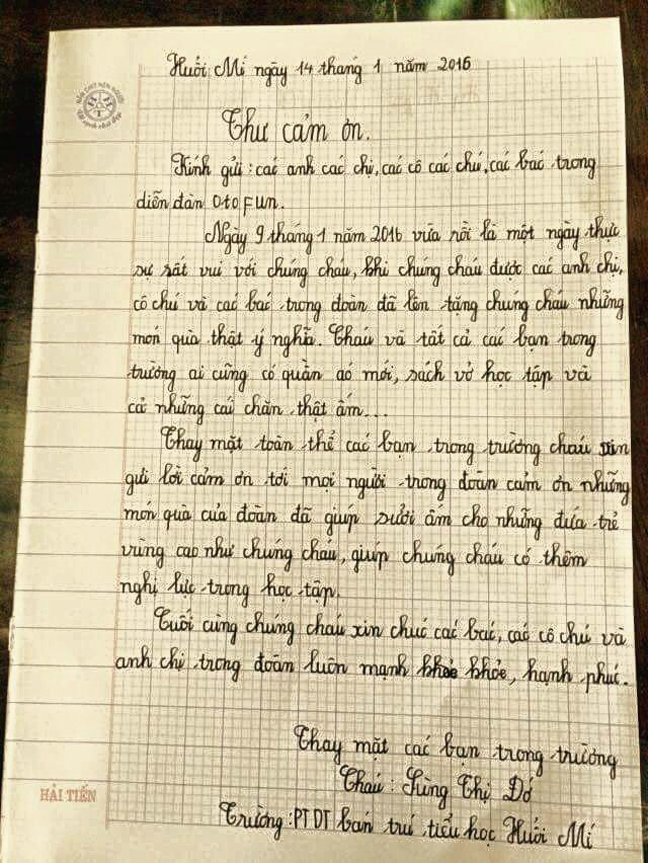 Huổi Mí ngày 14 tháng 1 năm 2016
Thư cảm ơn.
Kính gửi: các anh các chị, các cô các chú, các bác trong
diễn đàn OtoFun.
Ngày 9 tháng 1 năm 2016 vừa rồi là một ngày thực
sự rất vui với chúng cháu, khi chúng cháu được các anh chị,
cô chú và các bác trong đoàn đã lên tặng chúng cháu những
món quà thật ý nghĩa. Cháu và tất cả các bạn trong
trường ai cũng có quần áo mới, sách vở học tập và
cả những cái chăn thật ấm...
Thay mặt toàn thể các bạn trong trường cháu xin
gửi lời cảm ơn tới mọi người trong đoàn cảm ơn những
món quà của đoàn đã giúp sưởi ấm cho những đứa trẻ
vùng cao như chúng cháu, giúp chúng cháu có thêm
nghị lực trong học tập.
Cuối cùng chúng cháu xin chúc các bác, các cô chú và
anh chị trong đoàn luôn mạnh khỏe, hạnh phúc.
Thay mặt các bạn trong trường
Cháu: Sùng Thị Dớ
Trường: PTDT bán trú tiểu học Huổi Mí
NÉT CHỮ NẾT NGƯỜI
HẢI TIẾN